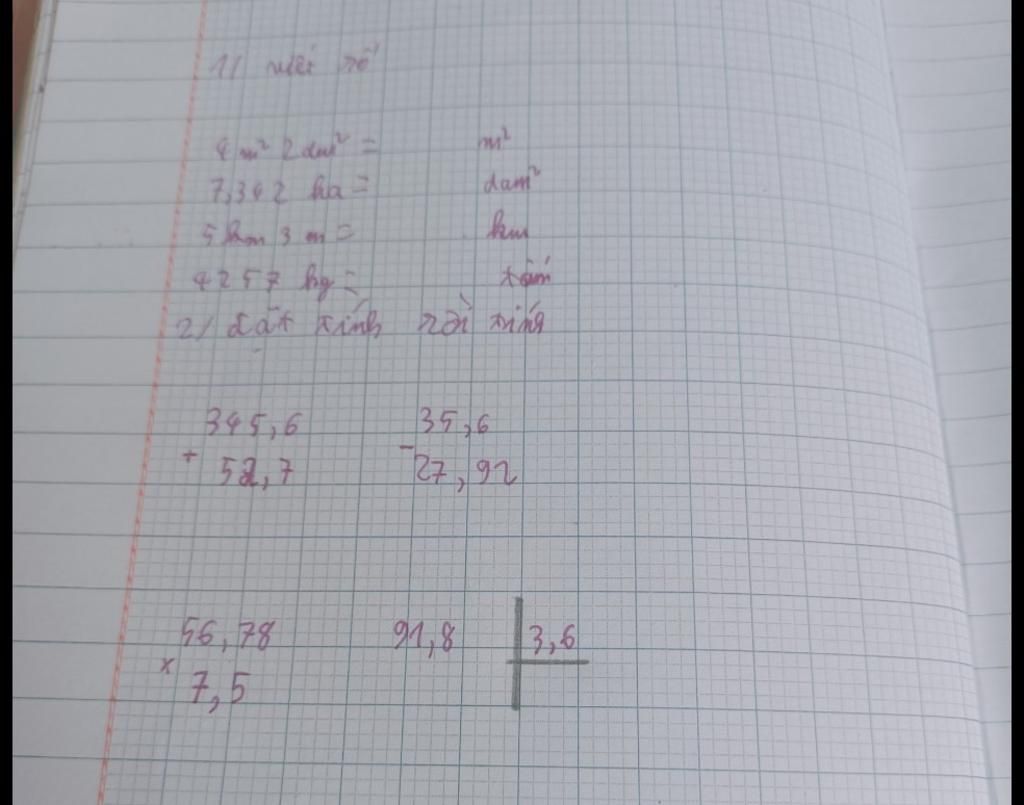 1) viết số
4 m² 2 dm² = m²
7,342 ha = dam²
5 km 3 m = km
4257 kg = tấn
2) đặt tính rồi tính
345,6 35,6
+ 52,7 - 27,92
56,78 91,8 3,6
x 7,5